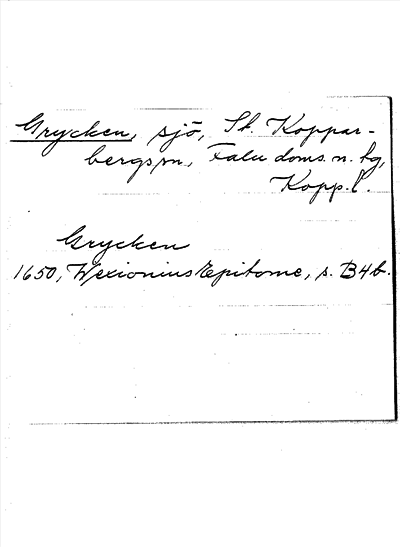 Grycken, sjö, St. Koppar-
bergs sn., Falu doms. n. tg,
Kopp. l.
Grycken
1650, Wexionius Epitome, s. B4b.